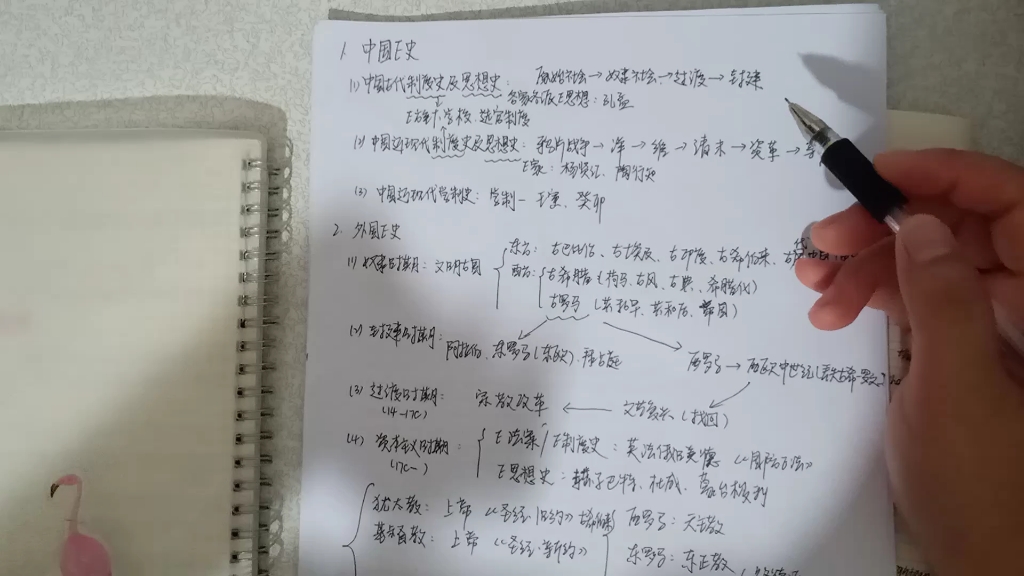 1. 中国E史
(1) 中国古代制度史及思想史： 原始社会→奴隶社会→过渡→封建
各家各派E思想：孔孟
官学、私学、选官制度
(2) 中国近现代制度史及思想史：鸦片战争→洋→维→清末→资革→
E家：杨贤江、陶行知
(3) 中国近现代学制史：学制－壬寅、癸卯
2. 外国E史
(1) 奴隶时期：文明古国
东方：古巴比伦、古埃及、古印度、古希伯来、古
西方：古希腊（荷马、古风、古典、希腊化）
古罗马（共和早、共和后、帝国）
(2) 时期：阿拉伯、东罗马（东欧）拜占庭
西罗马→西欧中世纪
(3) 过渡时期： 宗教改革 ← 文艺复兴（找回）
(14-17C)
(4) 资本主义时期：
(17C-)
E法案/E制度史：英法俄日美德
E思想史：赫尔巴特、杜威、
犹太教：上帝《圣经·旧约》 西罗马：天主教
基督教：上帝《圣经·新约》
东罗马：东正教